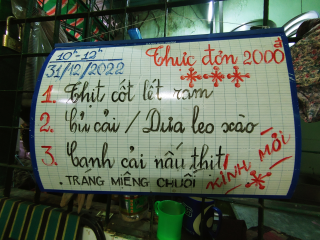 10h - 12h
31/12/2022
Thực đơn 2000đ
1. Thịt cốt lết ram
2. Củ cải / Dưa leo xào
3. Canh cải nấu thịt
. TRÁNG MIỆNG CHUỐI
KÍNH MỜI